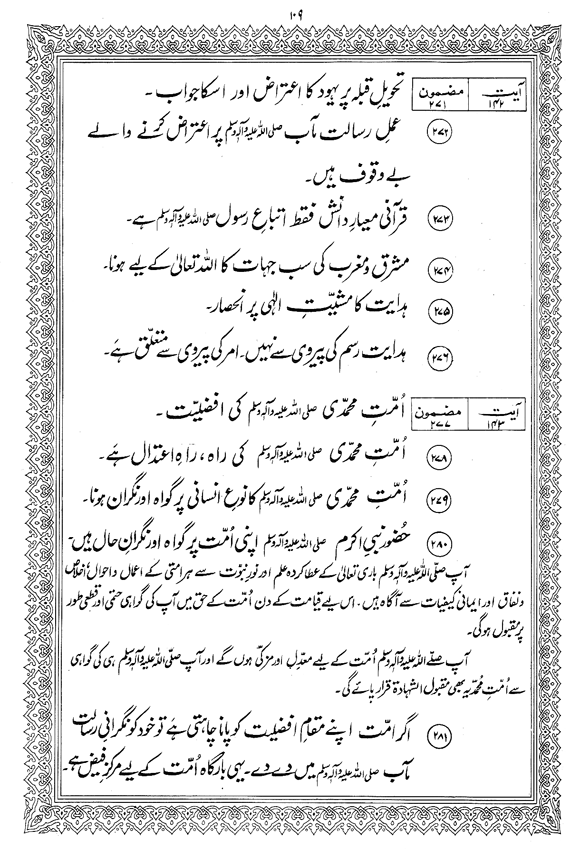 ۱۰۹
آیت ۱۴۲ مضمون ۲۷۱ تحویلِ قبلہ پر یہود کا اعتراض اور اسکا جواب ۔
۲۷۲ عملِ رسالت مآب صلی اللہ علیہ وآلہ وسلم پر اعتراض کرنے والے
بے وقوف ہیں۔
۲۷۳ قرآنی معیارِ دانش فقط اتباعِ رسول صلی اللہ علیہ وآلہ وسلم ہے۔
۲۷۴ مشرق و مغرب کی سب جہات کا اللہ تعالیٰ کے لیے ہونا۔
۲۷۵ ہدایت کا مشیّتِ الٰہی پر انحصار۔
۲۷۶ ہدایت رسم کی پیروی سے نہیں۔ امر کی پیروی سے متعلّق ہے۔
آیت ۱۴۳ مضمون ۲۷۷ اُمّتِ محمّدی صلی اللہ علیہ وآلہ وسلم کی افضلیّت ۔
۲۷۸ اُمّتِ محمّدی صلی اللہ علیہ وآلہ وسلم کی راہ، راہِ اعتدال ہے۔
۲۷۹ اُمّتِ محمّدی صلی اللہ علیہ وآلہ وسلم کا نوعِ انسانی پر گواہ اور نگران ہونا۔
۲۸۰ حضور نبی اکرم صلی اللہ علیہ وآلہ وسلم اپنی اُمّت پر گواہ اور نگرانِ حال ہیں۔
آپ صلّی اللہ علیہ وآلہ وسلم باری تعالیٰ کے عطا کردہ علم اور نورِ نبوّت سے ہر امتی کے اعمال و احوال، اخلاص
و نفاق اور ایمانی کیفیات سے آگاہ ہیں۔ اس لیے قیامت کے دن اُمّت کے حق میں آپ کی گواہی حتمی اور قطعی طور
پر مقبول ہوگی۔
آپ صلّے اللہ علیہ وآلہ وسلم اُمّت کے لیے معدّل اور مزکّی ہوں گے اور آپ صلّی اللہ علیہ وآلہ وسلم ہی کی گواہی
سے اُمّتِ محمّدیہ بھی مقبول الشہادۃ قرار پائے گی۔
۲۸۱ اگر امّت اپنے مقامِ افضلیت کو پانا چاہتی ہے تو خود کو نگرانیِ رسالت
مآب صلی اللہ علیہ وآلہ وسلم میں دے دے۔ یہی بارگاہ اُمّت کے لیے مرکزِ فیض ہے۔